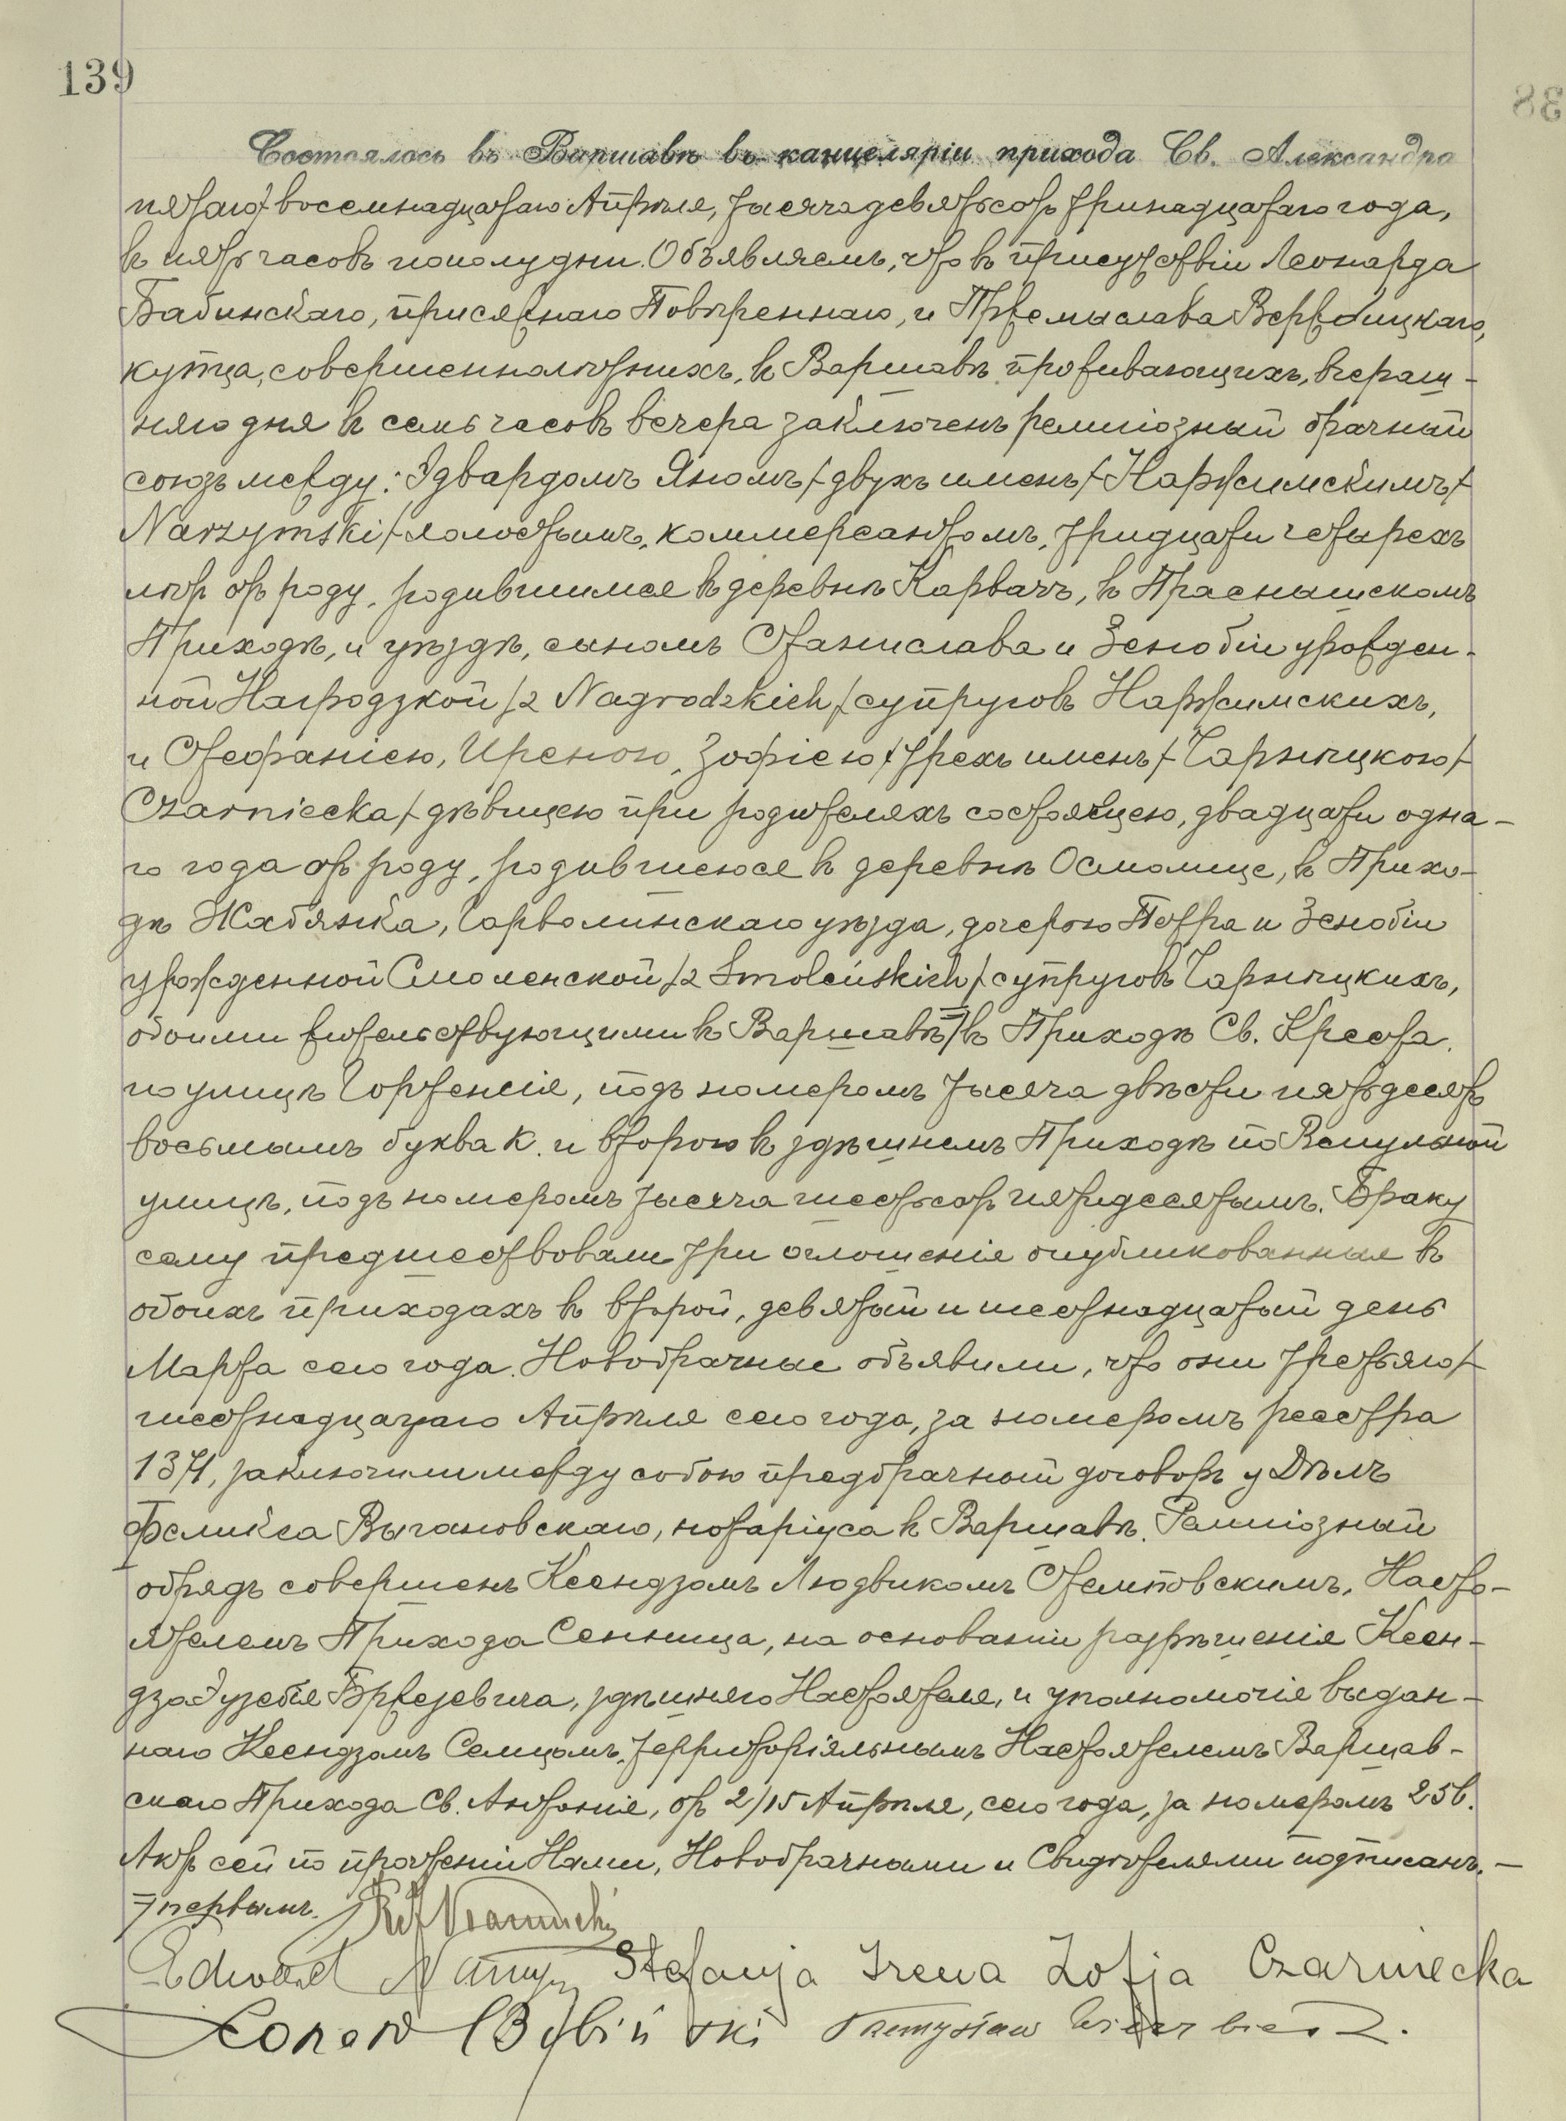 139
Состоялось въ Варшавѣ въ канцеляріи прихода Св. Александра
пятаго/восемнадцатаго Апрѣля, тысяча девятьсотъ тринадцатаго года,
въ пять часовъ пополудни. Объявляемъ, что въ присутствіи Леонарда
Бабинскаго, присяжнаго Повѣреннаго, и Пржемыслава Вержбицкаго,
купца, совершеннолѣтнихъ, въ Варшавѣ проживающихъ, вчераш-
няго дня въ семь часовъ вечера заключенъ религіозный брачный
союзъ между: Эдвардомъ Яномъ/двухъ именъ/Наржимскимъ/
Narzymski/холостымъ, коммерсантомъ, тридцати четырехъ
лѣтъ отъ роду, родившимся въ деревнѣ Карвачъ, въ Праснышскомъ
Приходѣ, и уѣздѣ, сыномъ Станислава и Зенобіи урожден-
ной Нагродзкой/z Nagrodzkich/супруговъ Наржимскихъ,
и Стефаніею, Иреною, Зофіею/трехъ именъ/Чарнѣцкою/
Czarniecka/дѣвицею при родителяхъ состоящею, двадцати одна-
го года отъ роду, родившеюся въ деревнѣ Осмолице, въ Прихо-
дѣ Жабянка, Гарволинскаго уѣзда, дочерью Петра и Зенобіи
урожденной Смоленской/z Smoleńskich/супруговъ Чарнѣцкихъ,
обоими жительствующими въ Варшавѣ/въ Приходѣ Св. Креста
по улицѣ Гортенсія, подъ номеромъ тысяча двѣсти пятьдесятъ
восьмымъ буква К. и второю въ здѣшнемъ Приходѣ по Вспульной
улицѣ, подъ номеромъ тысяча шестьсотъ пятидесятымъ. Браку
сему предшествовали три оглошенія опубликованныя въ
обоихъ приходахъ въ второй, девятый и шестнадцатый день
Марта сего года. Новобрачные объявили, что они третьяго/
шестнадцатаго Апрѣля сего года, за номеромъ реестра
1371, заключили между собою предбрачный договоръ у Дѣлъ
Феликса Выгановскаго, нотаріуса въ Варшавѣ. Религіозный
обрядъ совершенъ Ксендзомъ Людвикомъ Стемповскимъ, Насто-
ятелемъ Прихода Сенница, на основаніи разрѣшенія Ксен-
дза Эузебія Бржезевича, здѣшняго Настоятеля, и уполномочія выдан-
наго Ксендзомъ Селицомъ, территоріяльнымъ Настоятелемъ Варшав-
скаго Прихода Св. Антонія, отъ 2/15 Апрѣля, сего года, за номеромъ 256.
Актъ сей по прочтеніи Нами, Новобрачными и Свидѣтелями подписанъ. —
первымъ.
Edward Narzym Stefanja Irena Zofja Czarniecka
Leonard Babiński Przemysław Wierzbicki